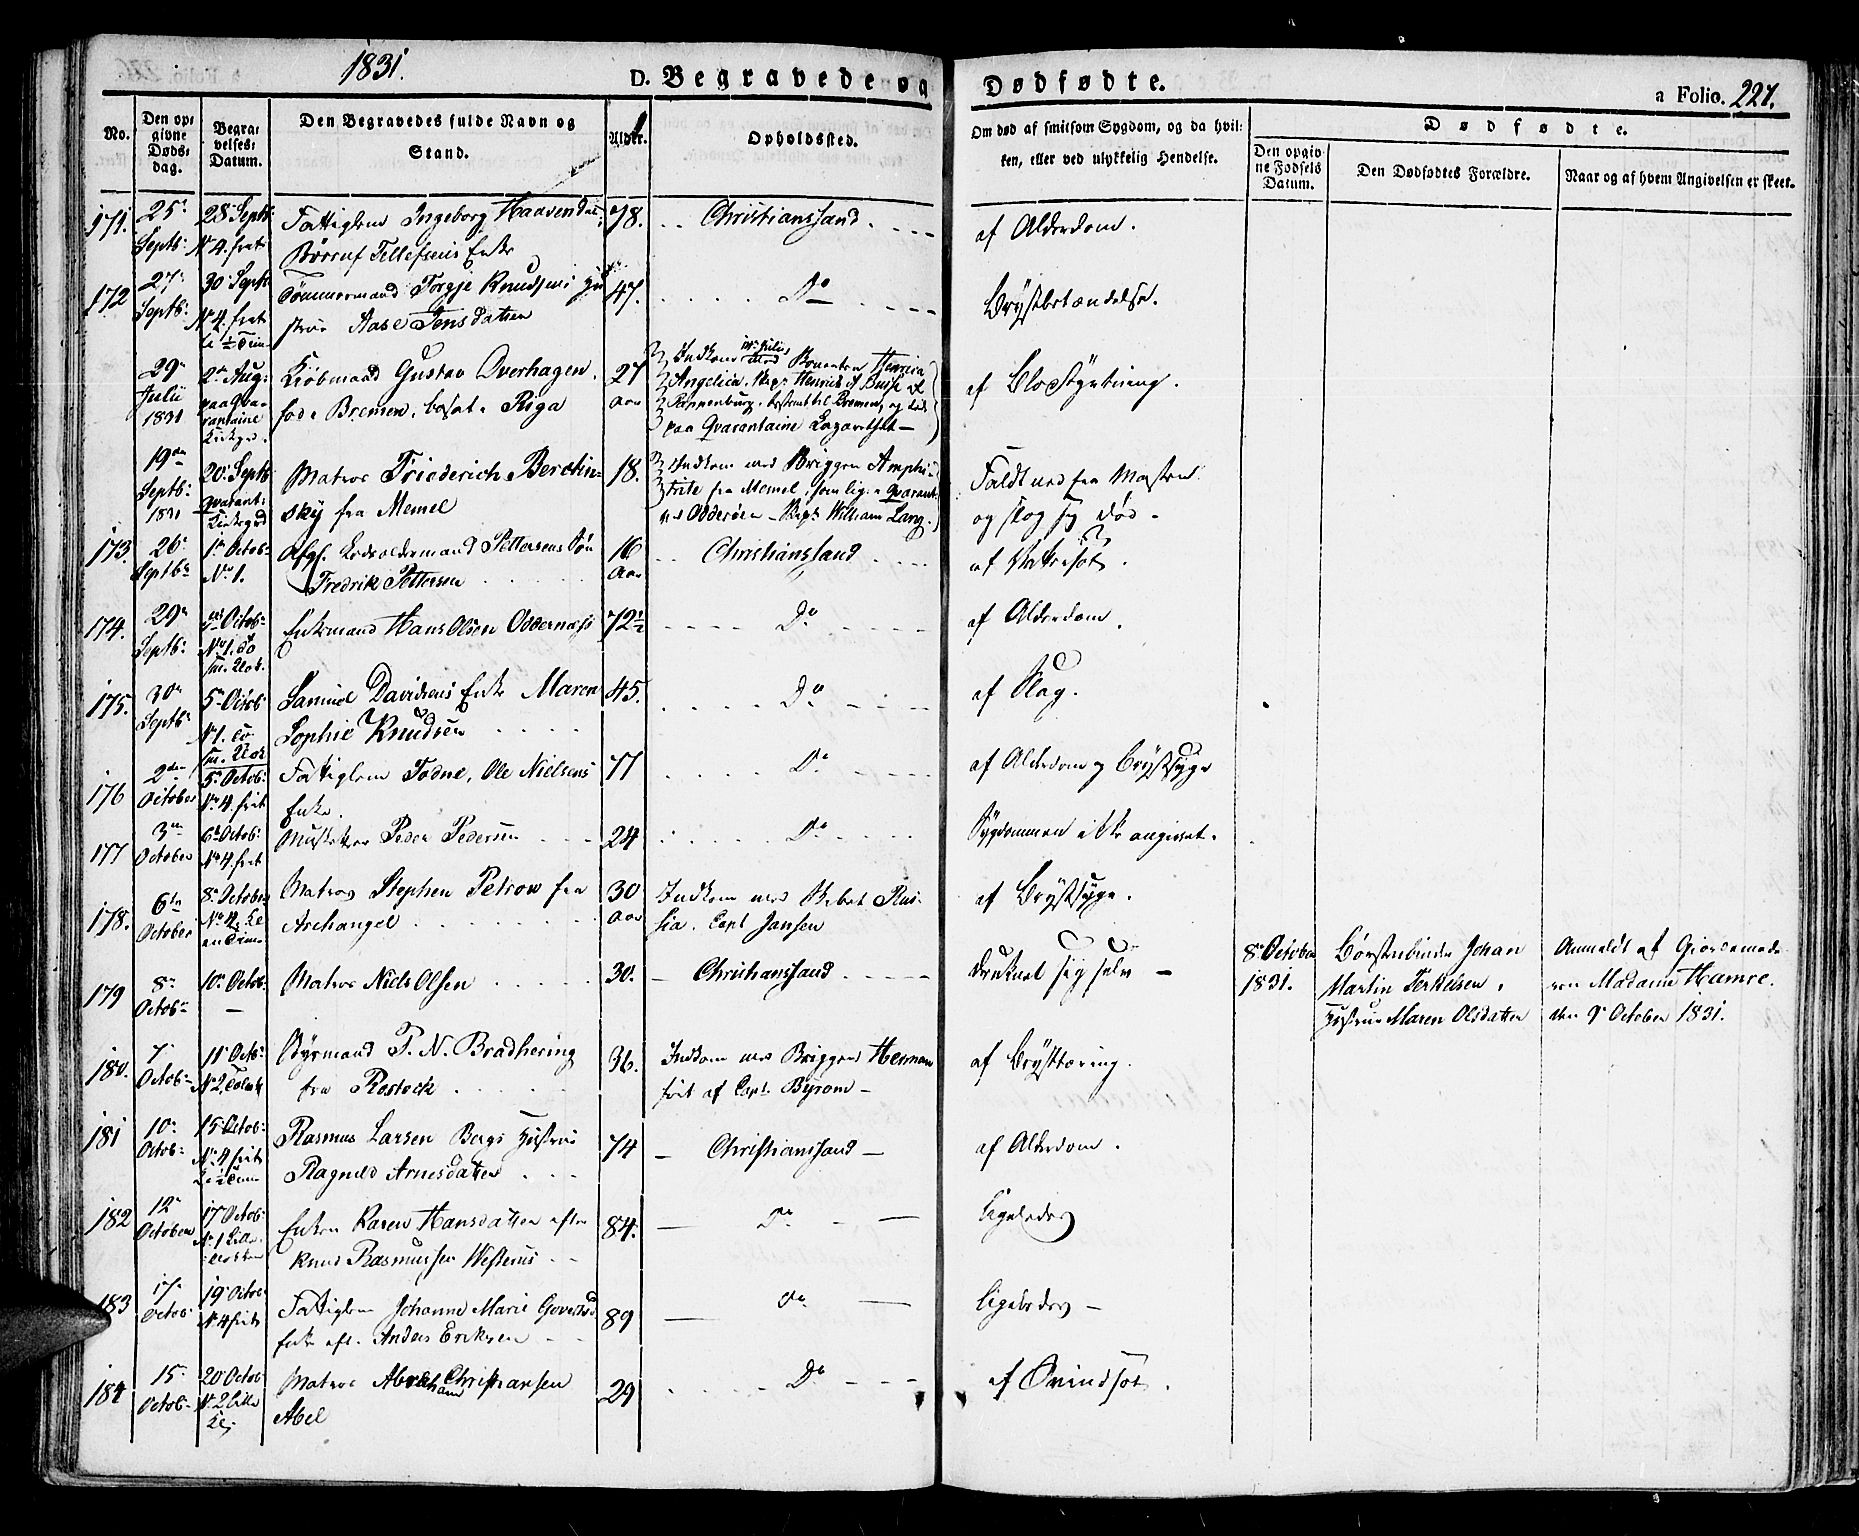 1831.
D. Begravede og Dødfødte.
a Folio. 227.
No.
Den opgivne Dødsdag.
Begravelses-Datum.
Den Begravedes fulde Navn og Stand.
Alder.
Opholdssted.
Om død af smitsom Sygdom, og da hvilken, eller ved ulykkelig Hendelse.
Dødfødte.
Den opgivne Fødsels Datum.
Den Dødfødtes Forældre.
Naar og af hvem Angivelsen er skeet.
171. 25 Septb: 28 Septb: No 4. frit Fattiglem Ingeborg Haavensdat: 78. Christianssand. af Alderdom.
Tellefsens Enke
172 27 Septb: 30 Septb: No 4. frit Tømmermand Torgje Knudsens Hustrue Aase Jensdatter 47. Do Brystbetændelse.
29 Julii 1831 2 Aug: paa Qvarantaine Kirkegd. Kiøbmand Gustav Overhagen 27 Aar Indkom med Angelica, Skipr Henrich
fød i Bremen, bosat i Riga paa Qvarantaine Lazarethet af Blodstyrtning.
19de Septb: 1831 20 Septb: Qvarant: Kirkegd Matros Friederich Berclinsky fra Memel 18. Indkom med Briggen Amphitrite fra Memel, som lig. i Qvarant: ved Odderøen – Skipr William Lang. Faldt ned fra Masten og slog sig død.
173. 26 Septb: 1 Octob: No 1. Afg: Lodsoldermand Pettersens Søn Fredrik Pettersen 16 Aar Christianssand af Vattersot.
174. 29 Septb: Octob: No 1. Enkemand Hans Olsen Oddernæs 72½ Do af Alderdom.
175. 30 Septb: 5 Octob: No 1. Samuel Davidsens Enke Maren Sophie Knudsen 45. Do af Slag.
176 2den October 5 Octob: No 4. frit Fattiglem Todne, Ole Nielsens Enke. 77 Do af Alderdom og Brystsyge
177 3 October 6 Octob: No 4. frit Musketeer Peder Pedersen 24 Do Sygdommen ikke angivet.
178. 6te October 8 October No 4. Matros Stephen Petrow fra Archangel 30 Aar Indkom med Skibet Russia. Capt Jansen af Brystsyge.
179 8 Octob: 10 Octob: Matros Niels Olsen 30. Christianssand druknet sig selv –
8 October 1831. Børstenbinder Johan Martin Terkelsen, Hustrue Maren Olsdatter
Anmeldt af Giordemoderen Madame Hamre. den 9 October 1831.
180. 7 Octob: 11 Octb: No 2. Styrmand T. N. Bradhering fra Rostock 36. Indkom med Briggen Herman ført af Capt. Byrom – af Brysttæring.
181 10 Octob: 15 Octob: No 4 frit Rasmus Larsen Bergs Hustrue Ragnild Arnesdatter 74 Christianssand – af Alderdom.
182 12 October 17 Octob: No 1 Lille Klokken Enken Karen Hansdatter efter Knud Rasmussen Westerus 84. Do ligeledes
183 17 Octob: 19 Octob: No 4 frit Fattiglem Johanne Marie Govertsd Enke eft. Anders Eriksen 89 Do ligeledes –
184 15 Octob: 20 Octob: No 2 Lille Kl. Matros Abraham Christiansen Abel 29 Do af Svindsot.